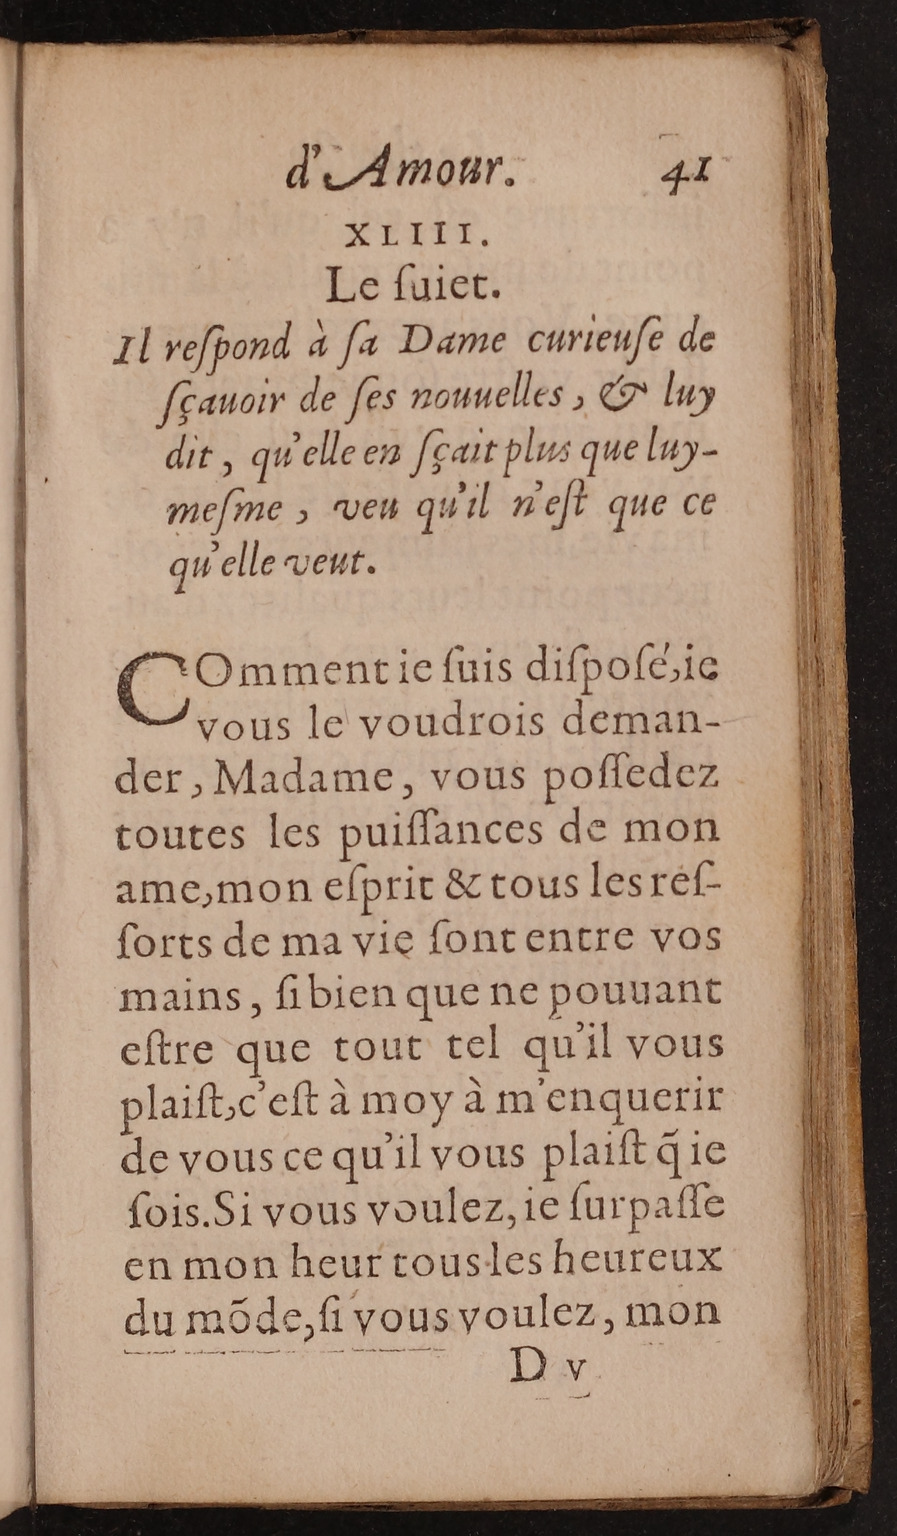 d'Amour. 41
XLIII.
Le ſuiet.
Il reſpond à ſa Dame curieuſe de
ſçauoir de ſes nouuelles, & luy
dit, qu'elle en ſçait plus que luy-
meſme, veu qu'il n'eſt que ce
qu'elle veut.
COmment ie ſuis diſpoſé, ie
vous le voudrois deman-
der, Madame, vous poſſedez
toutes les puiſſances de mon
ame, mon eſprit & tous les reſ-
ſorts de ma vie ſont entre vos
mains, ſi bien que ne pouuant
eſtre que tout tel qu'il vous
plaiſt, c'eſt à moy à m'enquerir
de vous ce qu'il vous plaiſt q̃ ie
ſois. Si vous voulez, ie ſurpaſſe
en mon heur tous les heureux
du mõde, ſi vous voulez, mon
D v